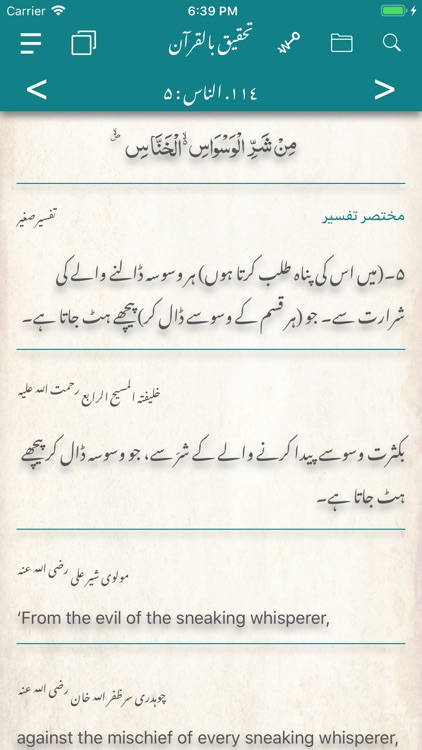 Carrier 6:39 PM
تحقیق بالقرآن
< ١١٤. الناس : ٥ >
مِنْ شَرِّ الْوَسْوَاسِ ۙ الْخَنَّاسِ ۙ
تفسیر صغیر مختصر تفسیر
۵۔ (میں اس کی پناہ طلب کرتا ہوں) ہر وسوسہ ڈالنے والے کی
شرارت سے۔ جو (ہر قسم کے وسوسے ڈال کر) پیچھے ہٹ جاتا ہے۔
خلیفتہ المسیح الرابع رحمت اللہ علیہ
بکثرت وسوسے پیدا کرنے والے کے شرّ سے، جو وسوسہ ڈال کر پیچھے
ہٹ جاتا ہے۔
مولوی شیر علی رضی اللہ عنہ
‘From the evil of the sneaking whisperer,
چوہدری سر ظفر اللہ خان رضی اللہ عنہ
against the mischief of every sneaking whisperer,